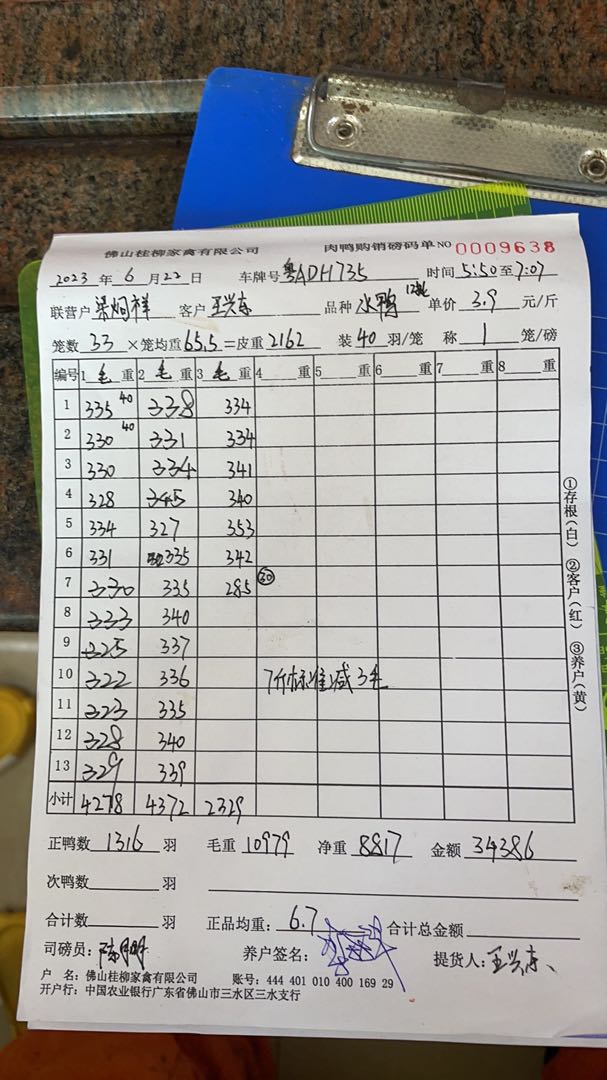 佛山桂柳家禽有限公司 肉鸭购销磅码单 NO 0009638
2023 年 6 月 22 日 车牌号 粤ADH735 时间 5:50 至 7:07
联营户 梁炯祥 客户 王兴东 品种 水鸭 单价 3.9 元/斤
笼数 33 ×笼均重 65.5 =皮重 2162 装 40 羽/笼 称 1 笼/磅
编号 1 毛 重 2 毛 重 3 毛 重 4 重 5 重 6 重 7 重 8 重
1 335 40 338 334
2 330 40 331 334
3 330 334 341
4 328 345 340
5 334 327 353
6 331 335 342
7 330 335 285 30
8 333 340
9 325 337
10 322 336 7斤标准减3毛
11 323 335
12 328 340
13 329 339
小计 4278 4372 2329
①存根(白) ②客户(红) ③养户(黄)
正鸭数 1316 羽 毛重 10979 净重 8817 金额 34386
次鸭数 羽
合计数 羽 正品均重: 6.7 合计总金额
司磅员: 养户签名: 提货人: 王兴东
户 名: 佛山桂柳家禽有限公司 账号: 444 401 010 400 169 29
开户行: 中国农业银行广东省佛山市三水区三水支行